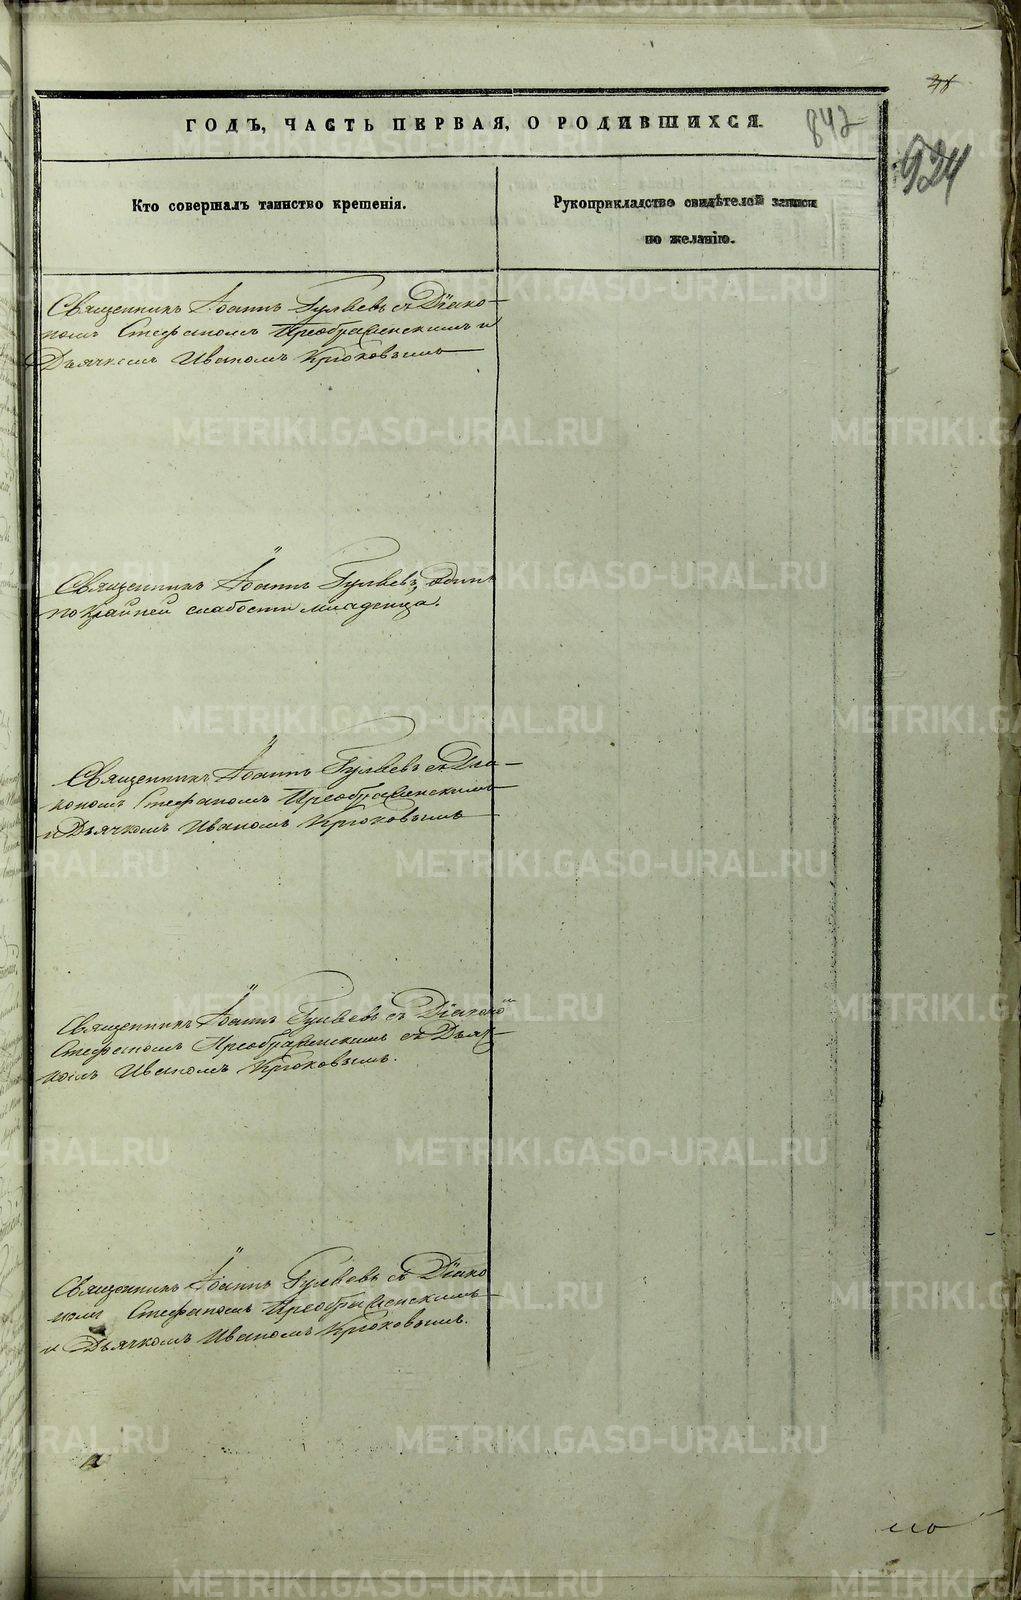 ГОДЪ, ЧАСТЬ ПЕРВАЯ, О РОДИВШИХСЯ.
842
924
Кто совершалъ таинство крещенія.
Рукоприкладство свидѣтелей записи
по желанію.
Священникъ Іоаннъ Гуляевъ съ Діако-
номъ Стефаномъ Преображенскимъ и
Дьячкомъ Иваномъ Крюковымъ
Священникъ Іоаннъ Гуляевъ, одинъ
по крайней слабости младенца.
Священникъ Іоаннъ Гуляевъ съ Діа-
кономъ Стефаномъ Преображенскимъ
и Дьячкомъ Иваномъ Крюковымъ
Священникъ Іоаннъ Гуляевъ съ Діакономъ
Стефаномъ Преображенскимъ съ Дьяч-
комъ Иваномъ Крюковымъ.
Священникъ Іоаннъ Гуляевъ съ Діако
номъ Стефаномъ Преображенскимъ
и Дьячкомъ Иваномъ Крюковымъ.
METRIKI.GASO-URAL.RU